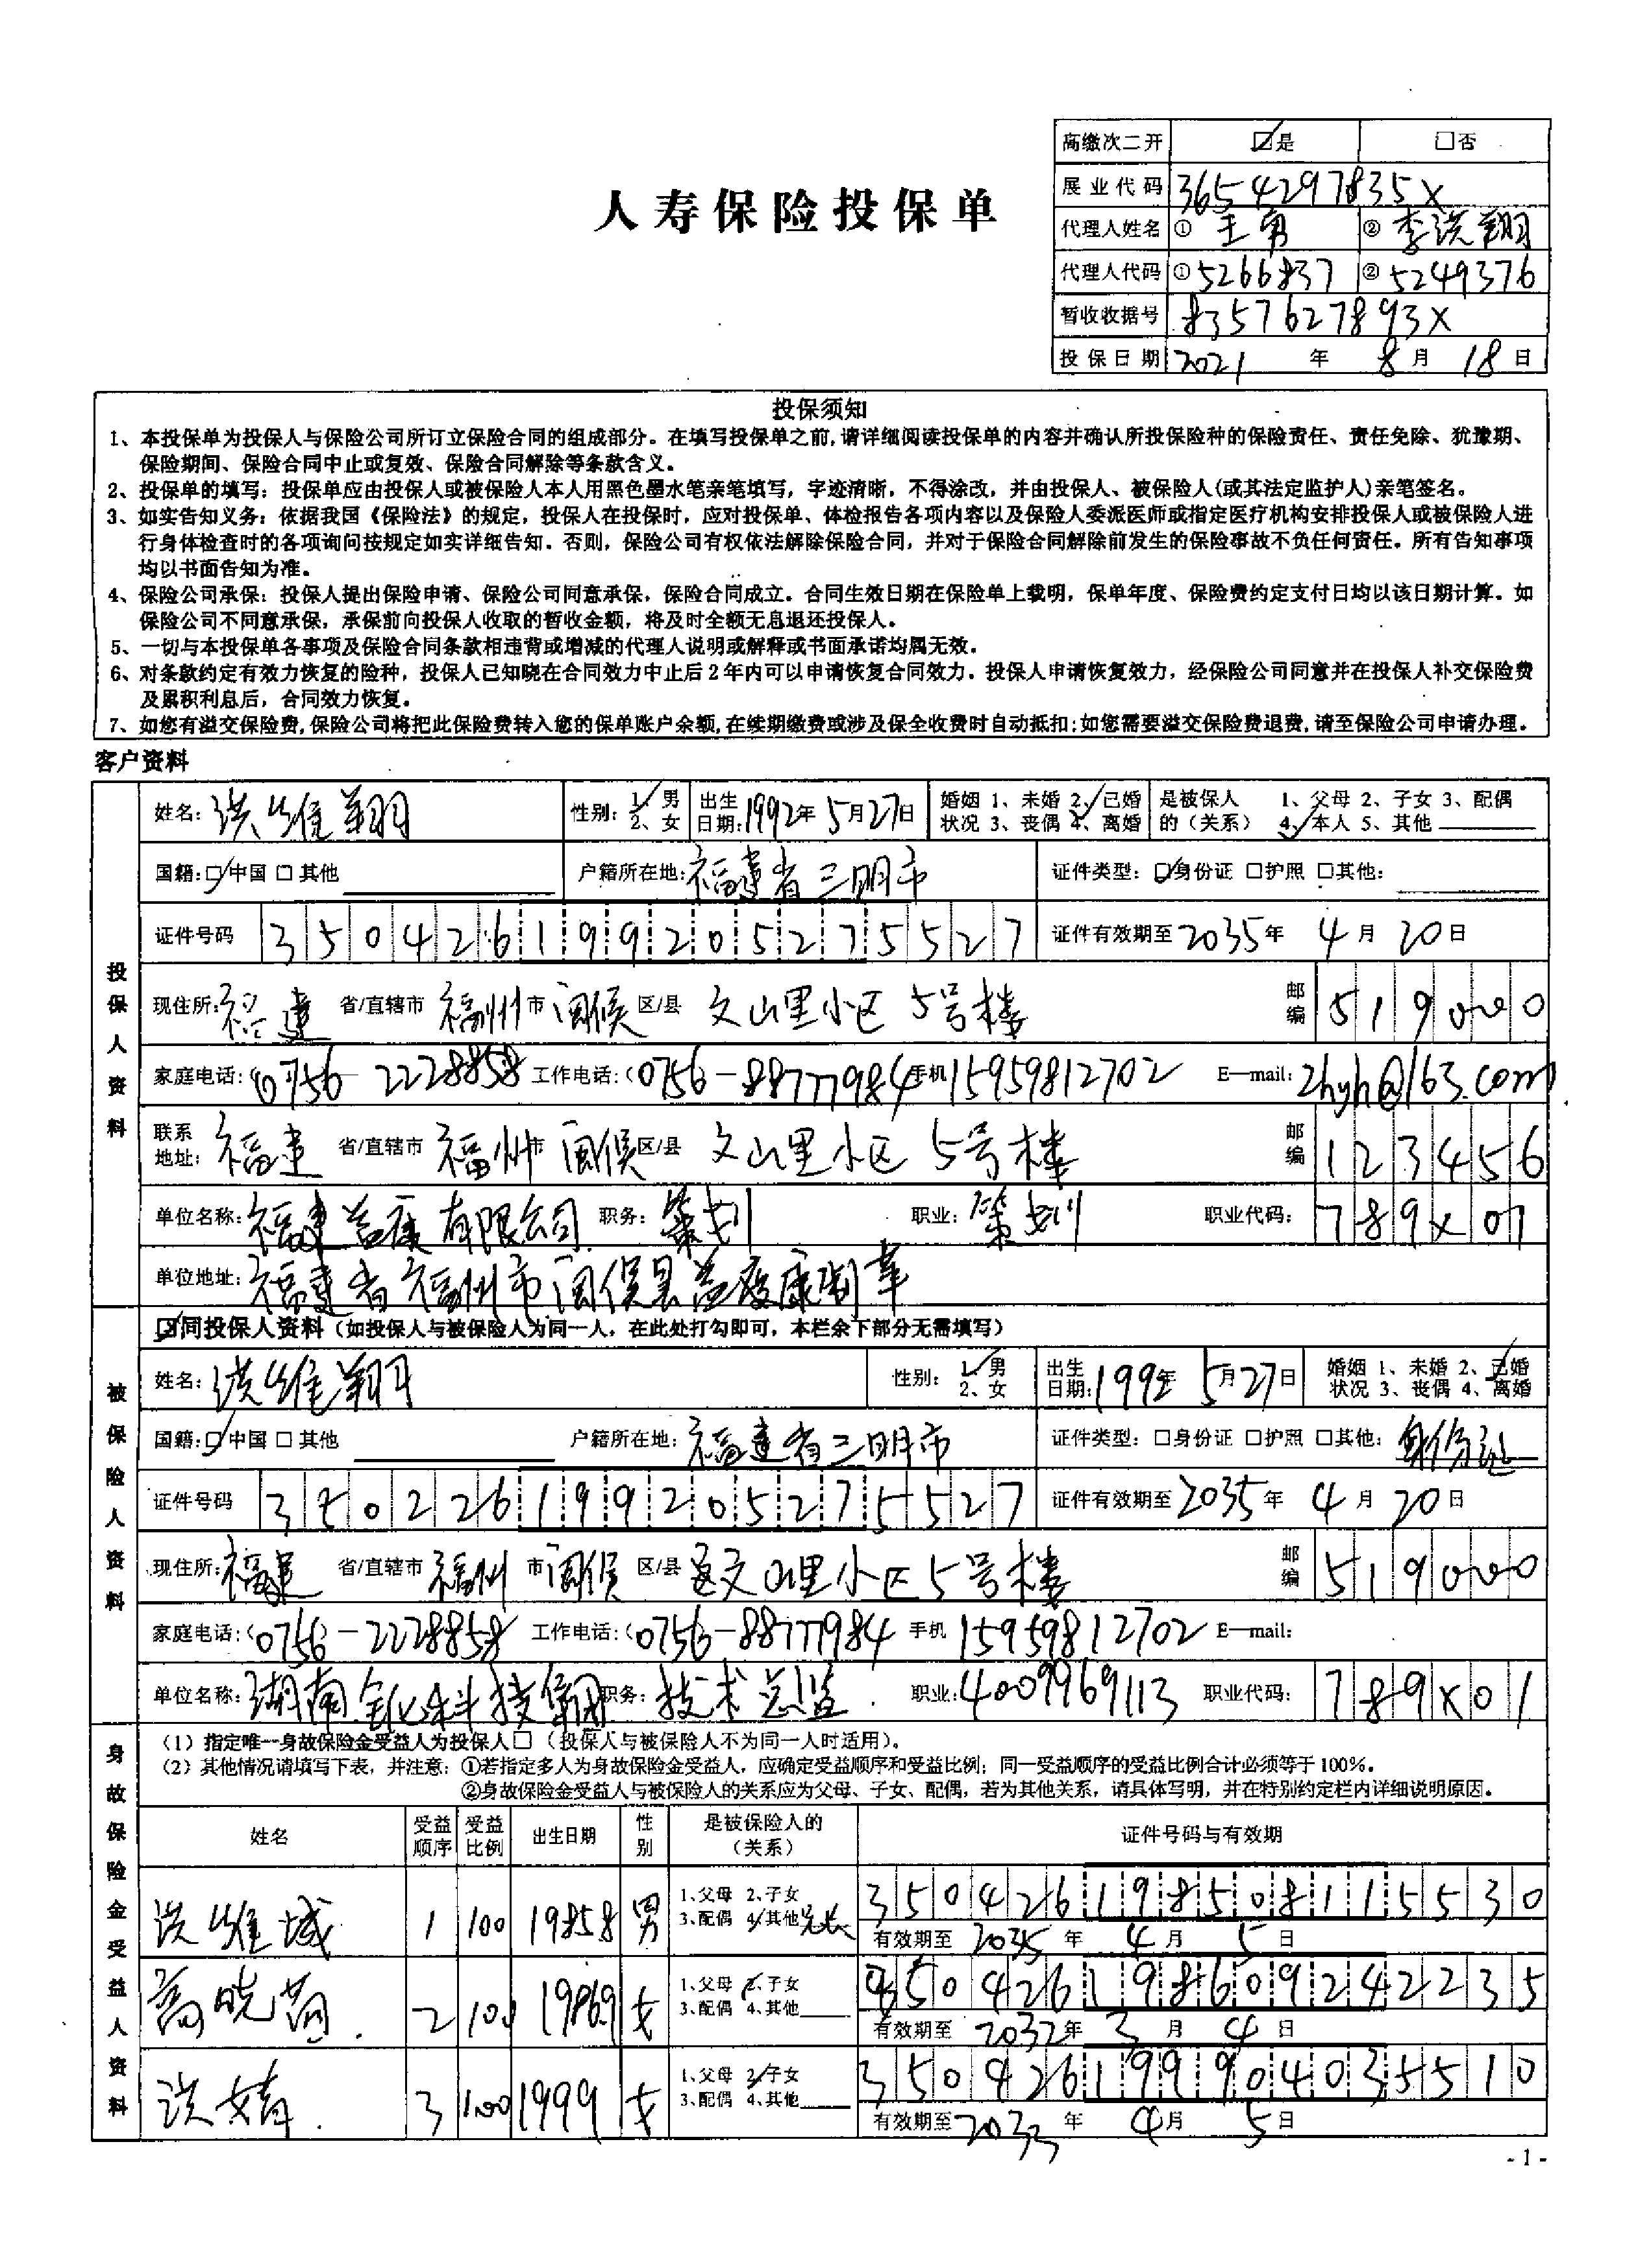 高缴次二开 ☑是 □否
人寿保险投保单
展业代码 3654297835X
代理人姓名 ① 王勇 ② 李洪翔
代理人代码 ① 5266837 ② 5249376
暂收收据号 8357627893X
投保日期 2021 年 8 月 18 日
投保须知
1、本投保单为投保人与保险公司所订立保险合同的组成部分。在填写投保单之前,请详细阅读投保单的内容并确认所投保险种的保险责任、责任免除、犹豫期、
保险期间、保险合同中止或复效、保险合同解除等条款含义。
2、投保单的填写：投保单应由投保人或被保险人本人用黑色墨水笔亲笔填写，字迹清晰，不得涂改，并由投保人、被保险人(或其法定监护人)亲笔签名。
3、如实告知义务：依据我国《保险法》的规定，投保人在投保时，应对投保单、体检报告各项内容以及保险人委派医师或指定医疗机构安排投保人或被保险人进
行身体检查时的各项询问按规定如实详细告知。否则，保险公司有权依法解除保险合同，并对于保险合同解除前发生的保险事故不负任何责任。所有告知事项
均以书面告知为准。
4、保险公司承保：投保人提出保险申请、保险公司同意承保，保险合同成立。合同生效日期在保险单上载明，保单年度、保险费约定支付日均以该日期计算。如
保险公司不同意承保，承保前向投保人收取的暂收金额，将及时全额无息退还投保人。
5、一切与本投保单各事项及保险合同条款相违背或增减的代理人说明或解释或书面承诺均属无效。
6、对条款约定有效力恢复的险种，投保人已知晓在合同效力中止后2年内可以申请恢复合同效力。投保人申请恢复效力，经保险公司同意并在投保人补交保险费
及累积利息后，合同效力恢复。
7、如您有溢交保险费,保险公司将把此保险费转入您的保单账户余额,在续期缴费或涉及保全收费时自动抵扣;如您需要溢交保险费退费,请至保险公司申请办理。
客户资料
投保人资料
姓名: 洪维翔 性别: 1、男 2、女 出生日期: 1992年 5月27日 婚姻状况 1、未婚 2、已婚 3、丧偶 4、离婚 是被保人的（关系） 1、父母 2、子女 3、配偶 4、本人 5、其他
国籍: ☑中国 □其他 户籍所在地: 福建省三明市 证件类型: ☑身份证 □护照 □其他:
证件号码 350426199205275527 证件有效期至 2035 年 4 月 20 日
现住所: 福建 省/直辖市 福州 市 闽侯 区/县 文山里小区 5号楼 邮编 519000
家庭电话: (0756 2228858 工作电话: (0756-88777984 手机 15959812702 E—mail: zhyh@163.com
联系地址: 福建 省/直辖市 福州 市 闽侯 区/县 文山里小区 5号楼 邮编 123456
单位名称: 福建益度有限公司 职务: 策划 职业: 策划 职业代码: 789x01
单位地址: 福建省福州市闽侯县益度康制革
被保险人资料
☑同投保人资料（如投保人与被保险人为同一人，在此处打勾即可，本栏余下部分无需填写）
姓名: 洪维翔 性别: 1、男 2、女 出生日期: 1992年 5月27日 婚姻状况 1、未婚 2、已婚 3、丧偶 4、离婚
国籍: ☑中国 □其他 户籍所在地: 福建省三明市 证件类型: □身份证 □护照 □其他: 身份证
证件号码 350226199205275527 证件有效期至 2035 年 4 月 20 日
现住所: 福建 省/直辖市 福州 市 闽侯 区/县 文山里小区5号楼 邮编 519000
家庭电话: (0756)-2228858 工作电话: (0756-88777984 手机 15959812702 E—mail:
单位名称: 湖南 科技集团 职务: 技术总监 职业: 4009969113 职业代码: 789x01
身故保险金受益人资料
（1）指定唯一身故保险金受益人为投保人□（投保人与被保险人不为同一人时适用）。
（2）其他情况请填写下表，并注意：①若指定多人为身故保险金受益人，应确定受益顺序和受益比例；同一受益顺序的受益比例合计必须等于100%。
②身故保险金受益人与被保险人的关系应为父母、子女、配偶，若为其他关系，请具体写明，并在特别约定栏内详细说明原因。
姓名 受益顺序 受益比例 出生日期 性别 是被保险人的（关系） 证件号码与有效期
洪维城 1 100 19858 男 1、父母 2、子女 3、配偶 4、其他 兄长 350426198508115530
有效期至 2035 年 4 月 5 日
高晓茵 2 100 19869 女 1、父母 2、子女 3、配偶 4、其他 350426198609242235
有效期至 2032 年 3 月 4 日
洪婧 3 100 1999 女 1、父母 2、子女 3、配偶 4、其他 350426199904035510
有效期至 2033 年 4 月 5 日
- 1 -